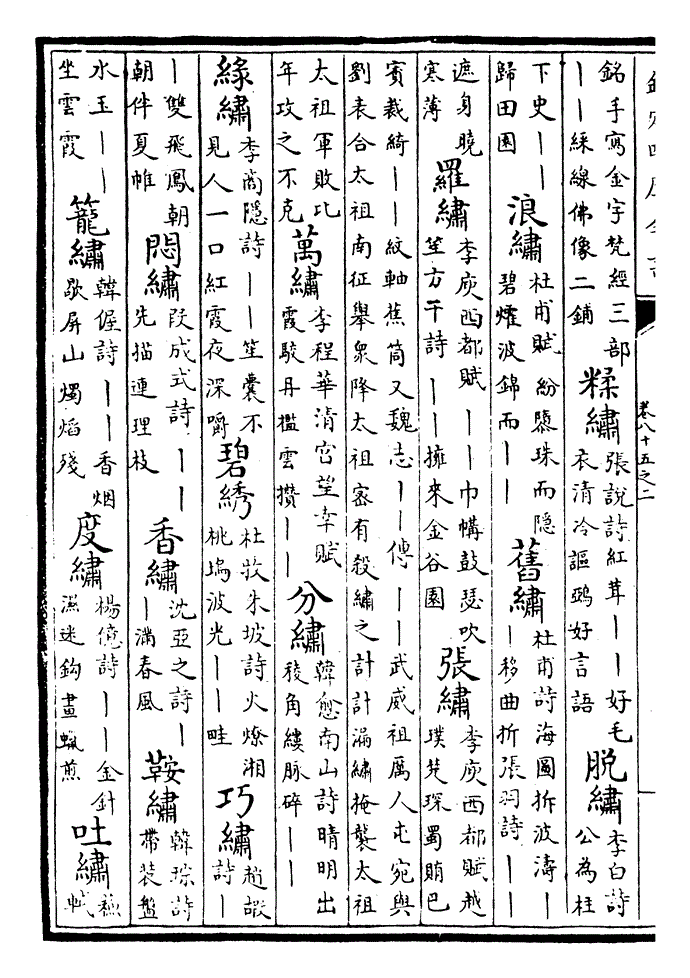 欽定四庫全書
卷八十五之二
銘手寫金字梵經三部
——綵線佛像二鋪
糅繡
張說詩紅茸——好毛
衣清冷謳鵶好言語
脫繡
李白詩
公為柱
下史——
歸田園
浪繡
杜甫賦紛隱珠而隱
碧熣波錦而——
舊繡
杜甫詩海圖拆波濤—
—移曲折張羽詩——
遮身曉
寒薄
羅繡
李庾西都賦——巾幬鼓瑟吹
笙方干詩——擁來金谷園
張繡
李庾西都賦越
璞梵琛蜀賄巴
賓裁綺——紋軸蕉筒又魏志——傳——武威祖厲人屯宛與
劉表合太祖南征舉衆降太祖密有殺繡之計計漏繡掩襲太祖
太祖軍敗比
年攻之不克
萬繡
李程華清宮望幸賦
霞駮丹檻雲攢——
分繡
韓愈南山詩晴明出
稜角縷脉碎——
緣繡
李商隱詩——笙囊不
見人一口紅霞夜深嚼
碧綉
杜牧朱坡詩火燎湘
桃塢波光——畦
巧繡
趙嘏
詩—
—雙飛鳳朝
朝伴夏帷
悶繡
段成式詩——
先描連理枝
香繡
沈亞之詩—
—滿春風
鞍繡
韓琮詩
帶裝盤
水玉——
坐雲霞
籠繡
韓偓詩——香烟
歇屏山燭焰殘
度繡
楊億詩——金針
濕迷鈎畫蠟煎
吐繡
蘇
軾